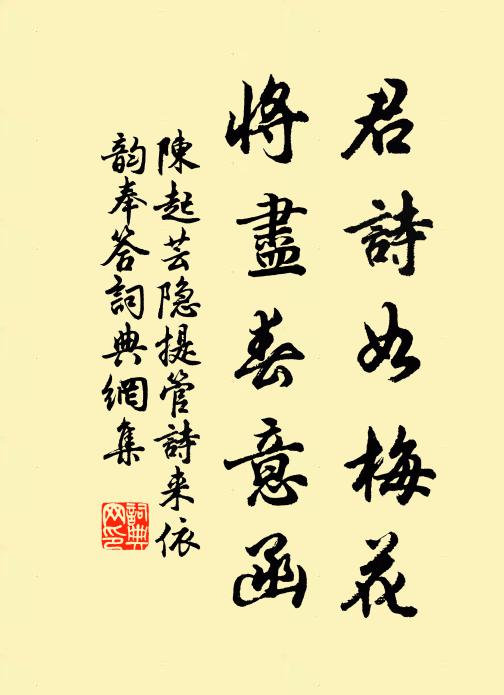 君詩如梅花
將盡春意函
陳起芸隐提管詩来依
韵奉答詞典網集
詞典
网印